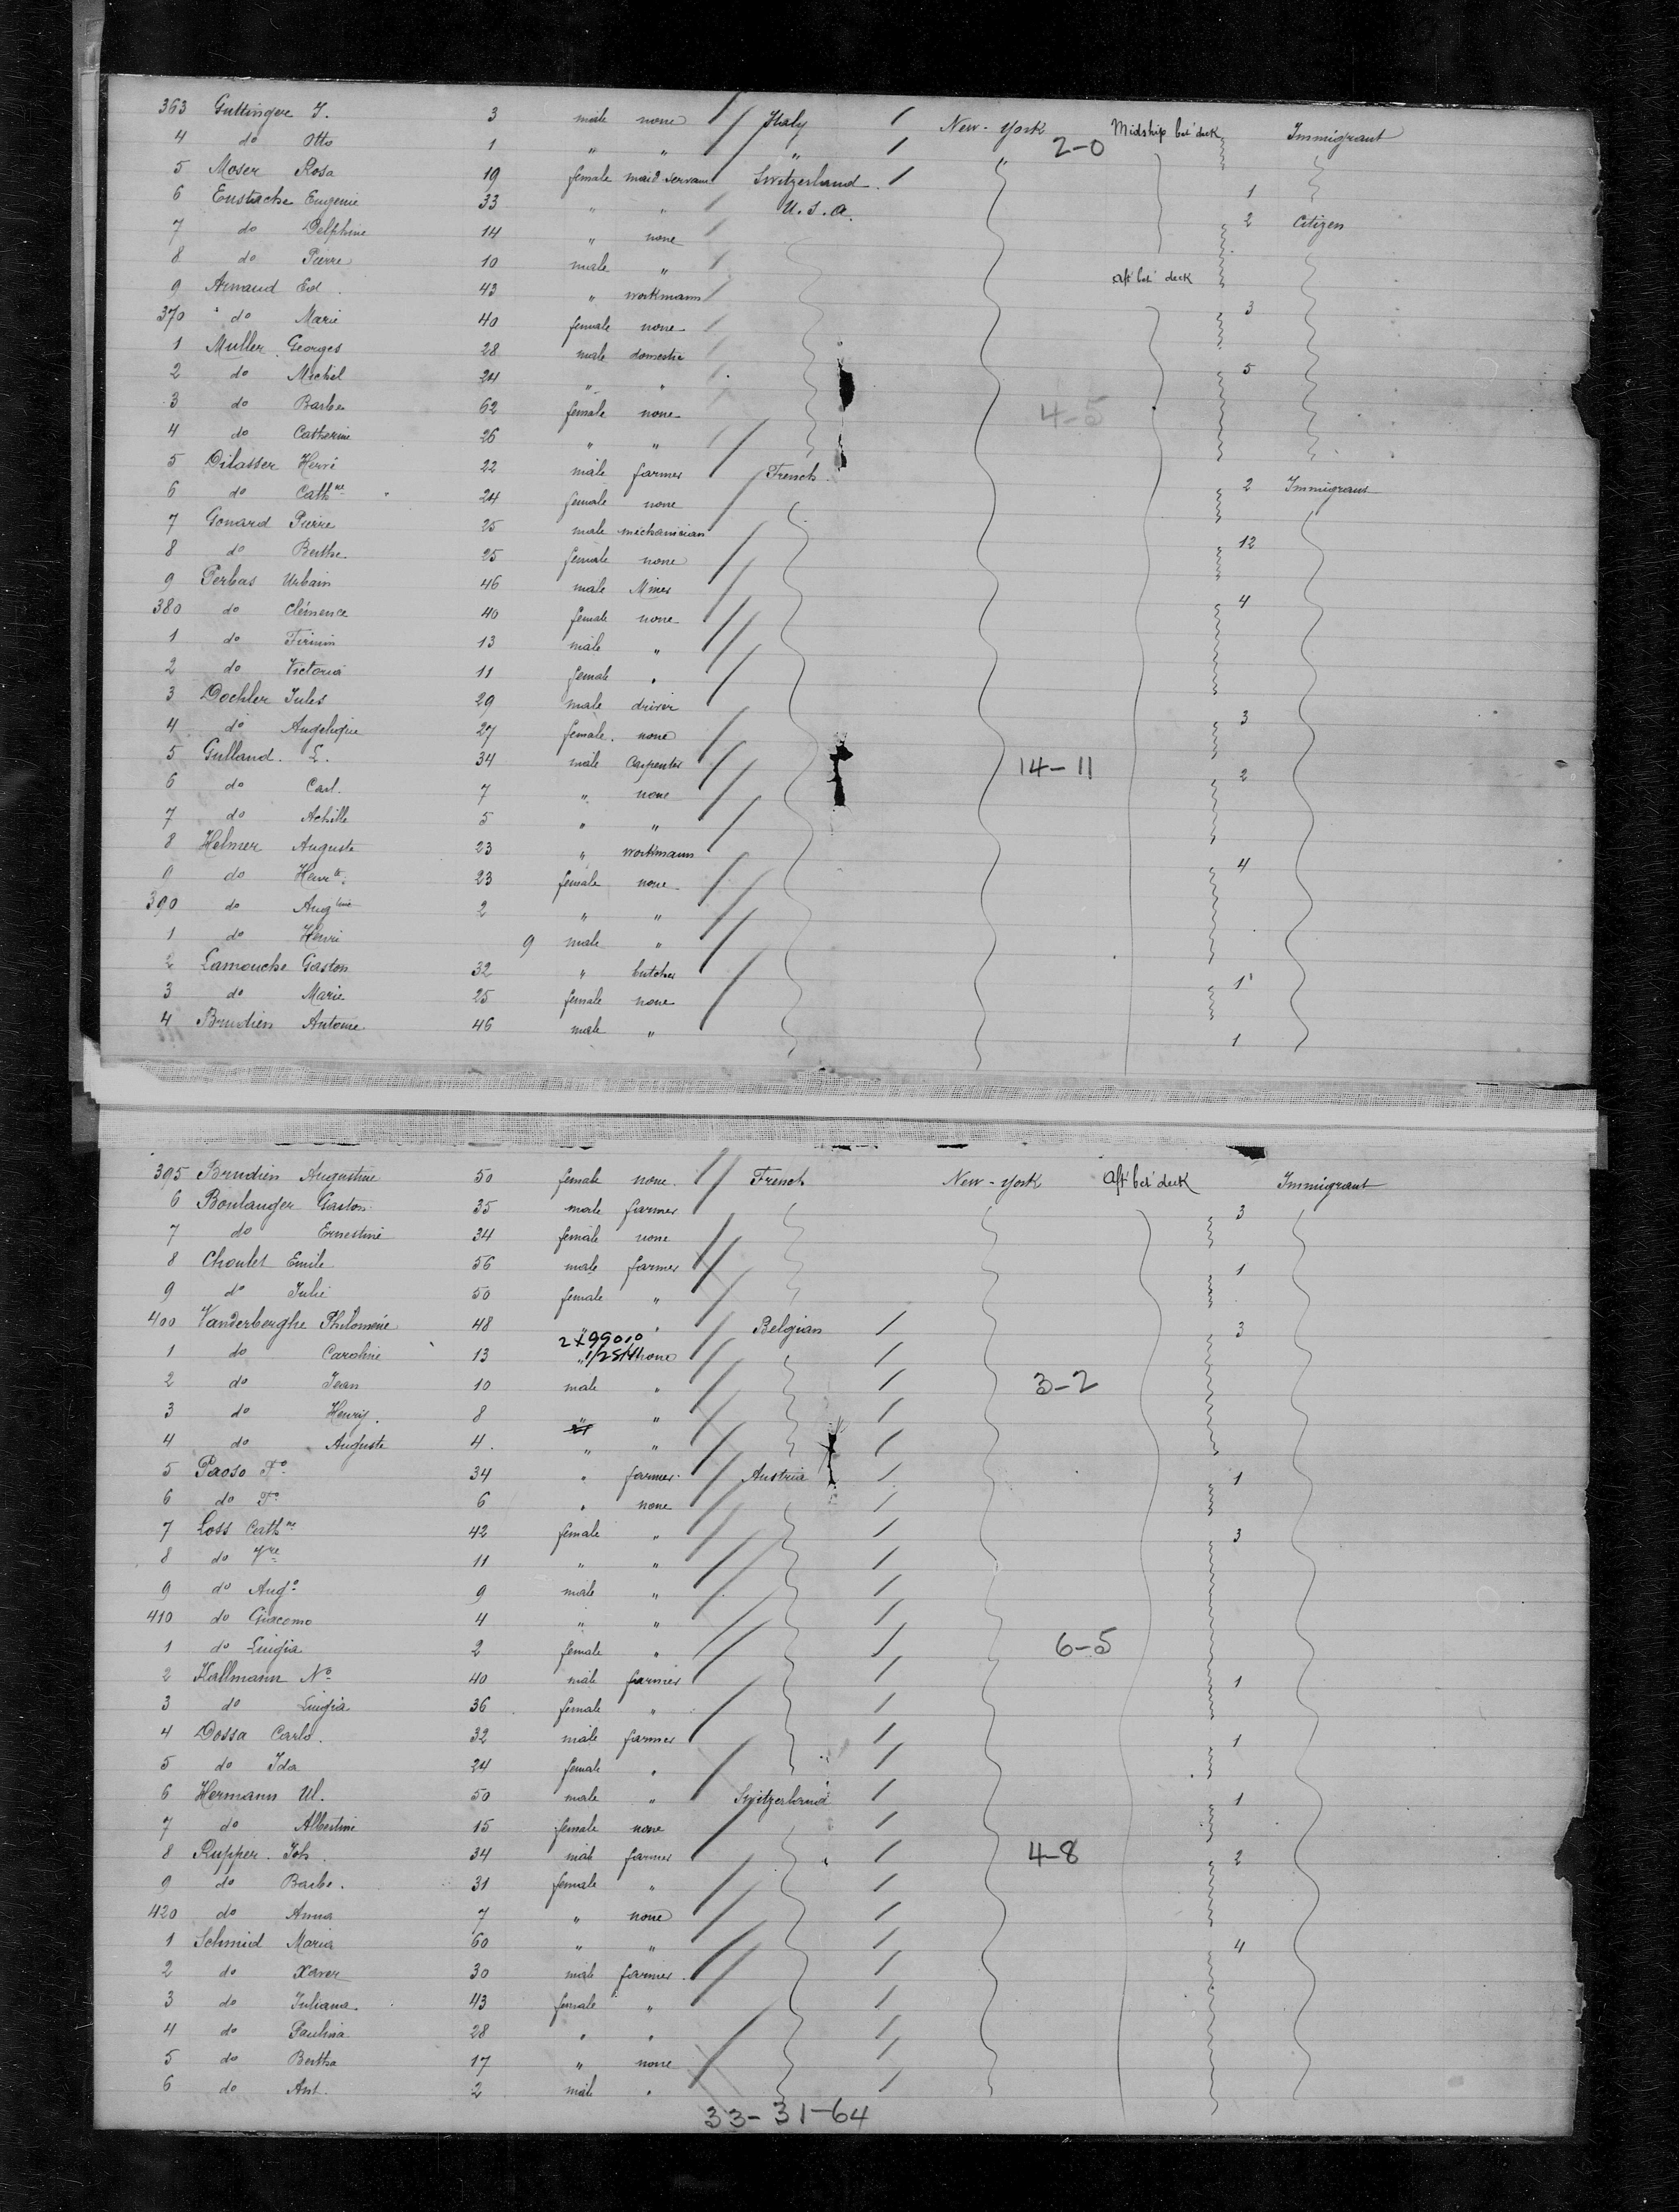 363 Guttinger J. 3 male none Italy New-York Midship bet deck Immigrant
4 do Otto 1 " " " " 2-0
5 Moser Rosa 19 female maid servant Switzerland 1
6 Eustache Eugenie 33 " " U.S.A. 2 Citizen
7 do Delphine 14 " none
8 do Pierre 10 male " aft bet deck
9 Arnaud Ed. 43 " workmann 3
370 do Marie 40 female none
1 Muller Georges 28 male domestic 5
2 do Michel 24 " "
3 do Barbe 62 female none 4-5
4 do Catherine 26 " "
5 Dilasser Hervé 22 male farmer French 2 Immigrant
6 do Cathne 24 female none
7 Gonard Pierre 25 male mechanician 12
8 do Berthe 25 female none
9 Perbas Urbain 46 male Miner 4
380 do Clémence 40 female none
1 do Firmin 13 male "
2 do Victoria 11 female "
3 Dochler Jules 29 male driver 3
4 do Angelique 27 female none
5 Gulland. L. 34 male Carpenter 14-11 2
6 do Carl. 7 " none
7 do Achille 5 " "
8 Helmer Auguste 23 " workmann 4
9 do Henrte 23 female none
390 do Augtine 2 " "
1 do Henri 9 male "
2 Lamouche Gaston 32 " butcher 1
3 do Marie 25 female none
4 Brudien Antoine 46 male " 1
395 Brudien Augustine 50 female none French New-York Aft bet deck Immigrant
6 Boulanger Gaston 35 male farmer 3
7 do Ernestine 34 female none
8 Choulet Emile 56 male farmer 1
9 do Julie 50 female "
400 Vanderberghe Philomene 48 " " Belgian 3
1 do Caroline 13 " none
2 do Jean 10 male " 3-2
3 do Henry. 8 " "
4 do Auguste 4. " "
5 Paoso Fo 34 " farmer Austria 1
6 do To 6 " none
7 Loss Cathne 42 female " 3
8 do 11 " "
9 do Augo 9 male "
410 do Giacomo 4 " "
1 do Luigia 2 female " 6-5
2 Kallmann No 40 male farmer 1
3 do Luigia 36 female "
4 Dossa Carlo. 32 male farmer 1
5 do Ida 24 female "
6 Hermann Ul. 50 male " Switzerland 1
7 do Albertine 15 female none
8 Rupper. Joh. 34 male farmer 4-8 2
9 do Barbe. 31 female "
420 do Anna 7 " none
1 Schmid Maria 60 " " 4
2 do Xaver 30 male farmer
3 do Juliana. 43 female "
4 do Paulina 28 " "
5 do Bertha 17 " none
6 do Ant. 2 male "
33-31-64